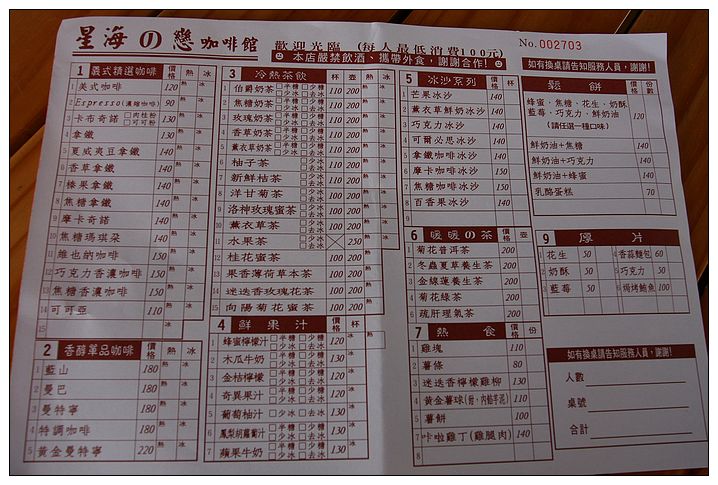 星海の戀 咖啡館
歡迎光臨 (每人最低消費100元)
No. 002703
本店嚴禁飲酒、攜帶外食，謝謝合作!
1 義式精選咖啡 價格 熱 冰
1 美式咖啡 120 熱 冰
2 Espresso(濃縮咖啡) 90 熱
3 卡布奇諾 □肉桂粉 □可可粉 130 熱 冰
4 拿鐵 130 熱 冰
5 夏威夷豆拿鐵 140 熱 冰
6 香草拿鐵 140 熱 冰
7 榛果拿鐵 140 熱 冰
8 焦糖拿鐵 140 熱 冰
9 摩卡奇諾 140 熱 冰
10 焦糖瑪琪朵 140 熱 冰
11 維也納咖啡 150 熱 冰
12 巧克力香濃咖啡 150 熱 冰
13 焦糖香濃咖啡 150 熱 冰
14 可可亞 110 熱 冰
15
2 香醇單品咖啡 價格 熱 冰
1 藍山 180 熱 冰
2 曼巴 180 熱 冰
3 曼特寧 180 熱 冰
4 特調咖啡 180 熱 冰
5 黃金曼特寧 220 熱 冰
3 冷熱茶飲 杯 壺
1 伯爵奶茶 □半糖 □少糖 □少冰 □去冰 110 200
2 焦糖奶茶 □半糖 □少糖 □少冰 □去冰 100 200
3 玫瑰奶茶 □半糖 □少糖 □少冰 □去冰 100 200
4 香草奶茶 □半糖 □少糖 □少冰 □去冰 100 200
5 薰衣草奶茶 □半糖 □少糖 □少冰 □去冰 100 200
6 柚子茶 □少冰 □去冰 100 200
7 新鮮桔茶 □少冰 □去冰 100 200
8 洋甘菊茶 □少冰 □去冰 100 200
9 洛神玫瑰蜜茶 □少冰 □去冰 100 200
10 薰衣草茶 □少冰 □去冰 100 200
11 水果茶 □少冰 □去冰 250
12 桂花蜜茶 100 200
13 果香薄荷草本茶 100 200
14 迷迭香玫瑰花茶 100 200
15 向陽菊花蜜茶 100 200
4 鮮果汁 價格 杯
1 蜂蜜檸檬汁 □半糖 □少糖 □少冰 □去冰 120
2 木瓜牛奶 □半糖 □少糖 □少冰 □去冰 130
3 金桔檸檬 □半糖 □少糖 □少冰 □去冰 120
4 奇異果汁 □半糖 □少糖 □少冰 □去冰 120
5 葡萄柚汁 □少冰 □去冰 130
6 鳳梨胡蘿蔔汁 □半糖 □少糖 □少冰 □去冰 130
7 蘋果牛奶 □半糖 □少糖 □少冰 □去冰 130
5 冰沙系列 價格 杯
1 芒果冰沙 140
2 薰衣草鮮奶冰沙 140
3 巧克力冰沙 140
4 可爾必思冰沙 140
5 拿鐵咖啡冰沙 140
6 摩卡咖啡冰沙 150
7 焦糖咖啡冰沙 140
8 百香果冰沙 140
9
6 暖暖の茶 價格 壺
1 菊花普洱茶 200
2 冬蟲夏草養生茶 200
3 金線蓮養生茶 200
4 菊花綠茶 200
5 疏肝理氣茶 200
7 熱食 價格 份
1 雞塊 110
2 薯條 80
3 迷迭香檸檬雞柳 130
4 黃金薯球 110
5 薯餅 100
7 咔啦雞丁(雞腿肉) 140
8
如有換桌請告知服務人員，謝謝!
鬆餅 價格 份數
蜂蜜・焦糖・花生・奶酥
藍莓・巧克力・鮮奶油
(請任選一種口味)
120
鮮奶油+焦糖 140
鮮奶油+巧克力 140
鮮奶油+蜂蜜 140
乳酪蛋糕 70
9 厚片
1 花生 50 4 香蒜麵包 60
2 奶酥 50 5 巧克力 50
3 藍莓 50 6 焗烤鮪魚 100
如有換桌請告知服務人員，謝謝!
人數
桌號
合計